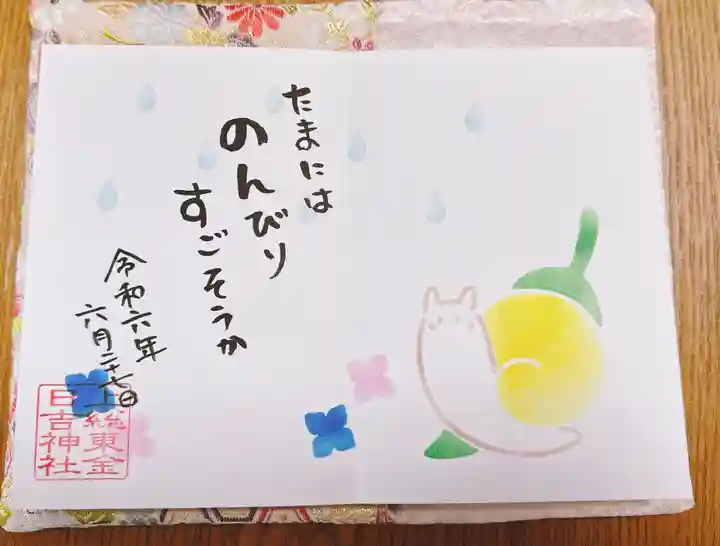 たまには
のんびり
すごそうか
令和六年
六月二十七日
上総東金
日吉神社